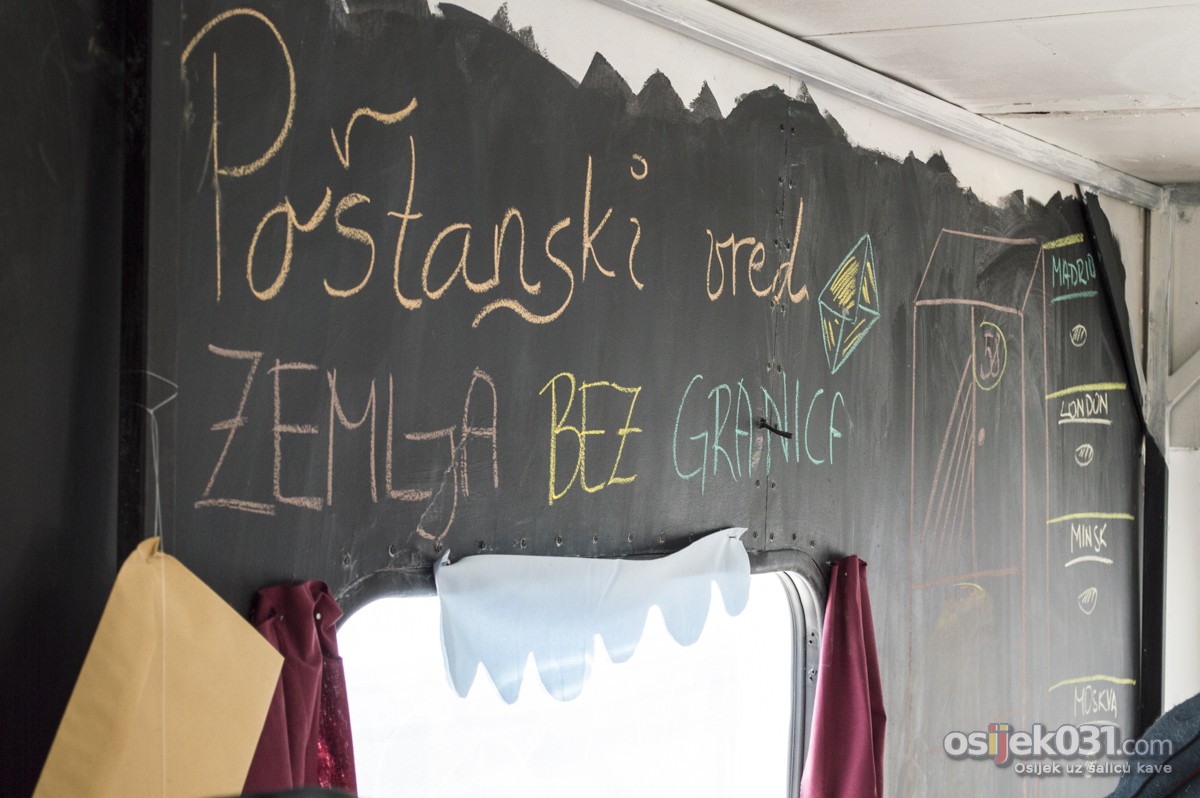 Poštanski vred
ZEMLJA BEZ GRANICA
58
MADRID
LONDON
MINSK
MOSKVA
osijek031.com
Osijek uz šalicu kave